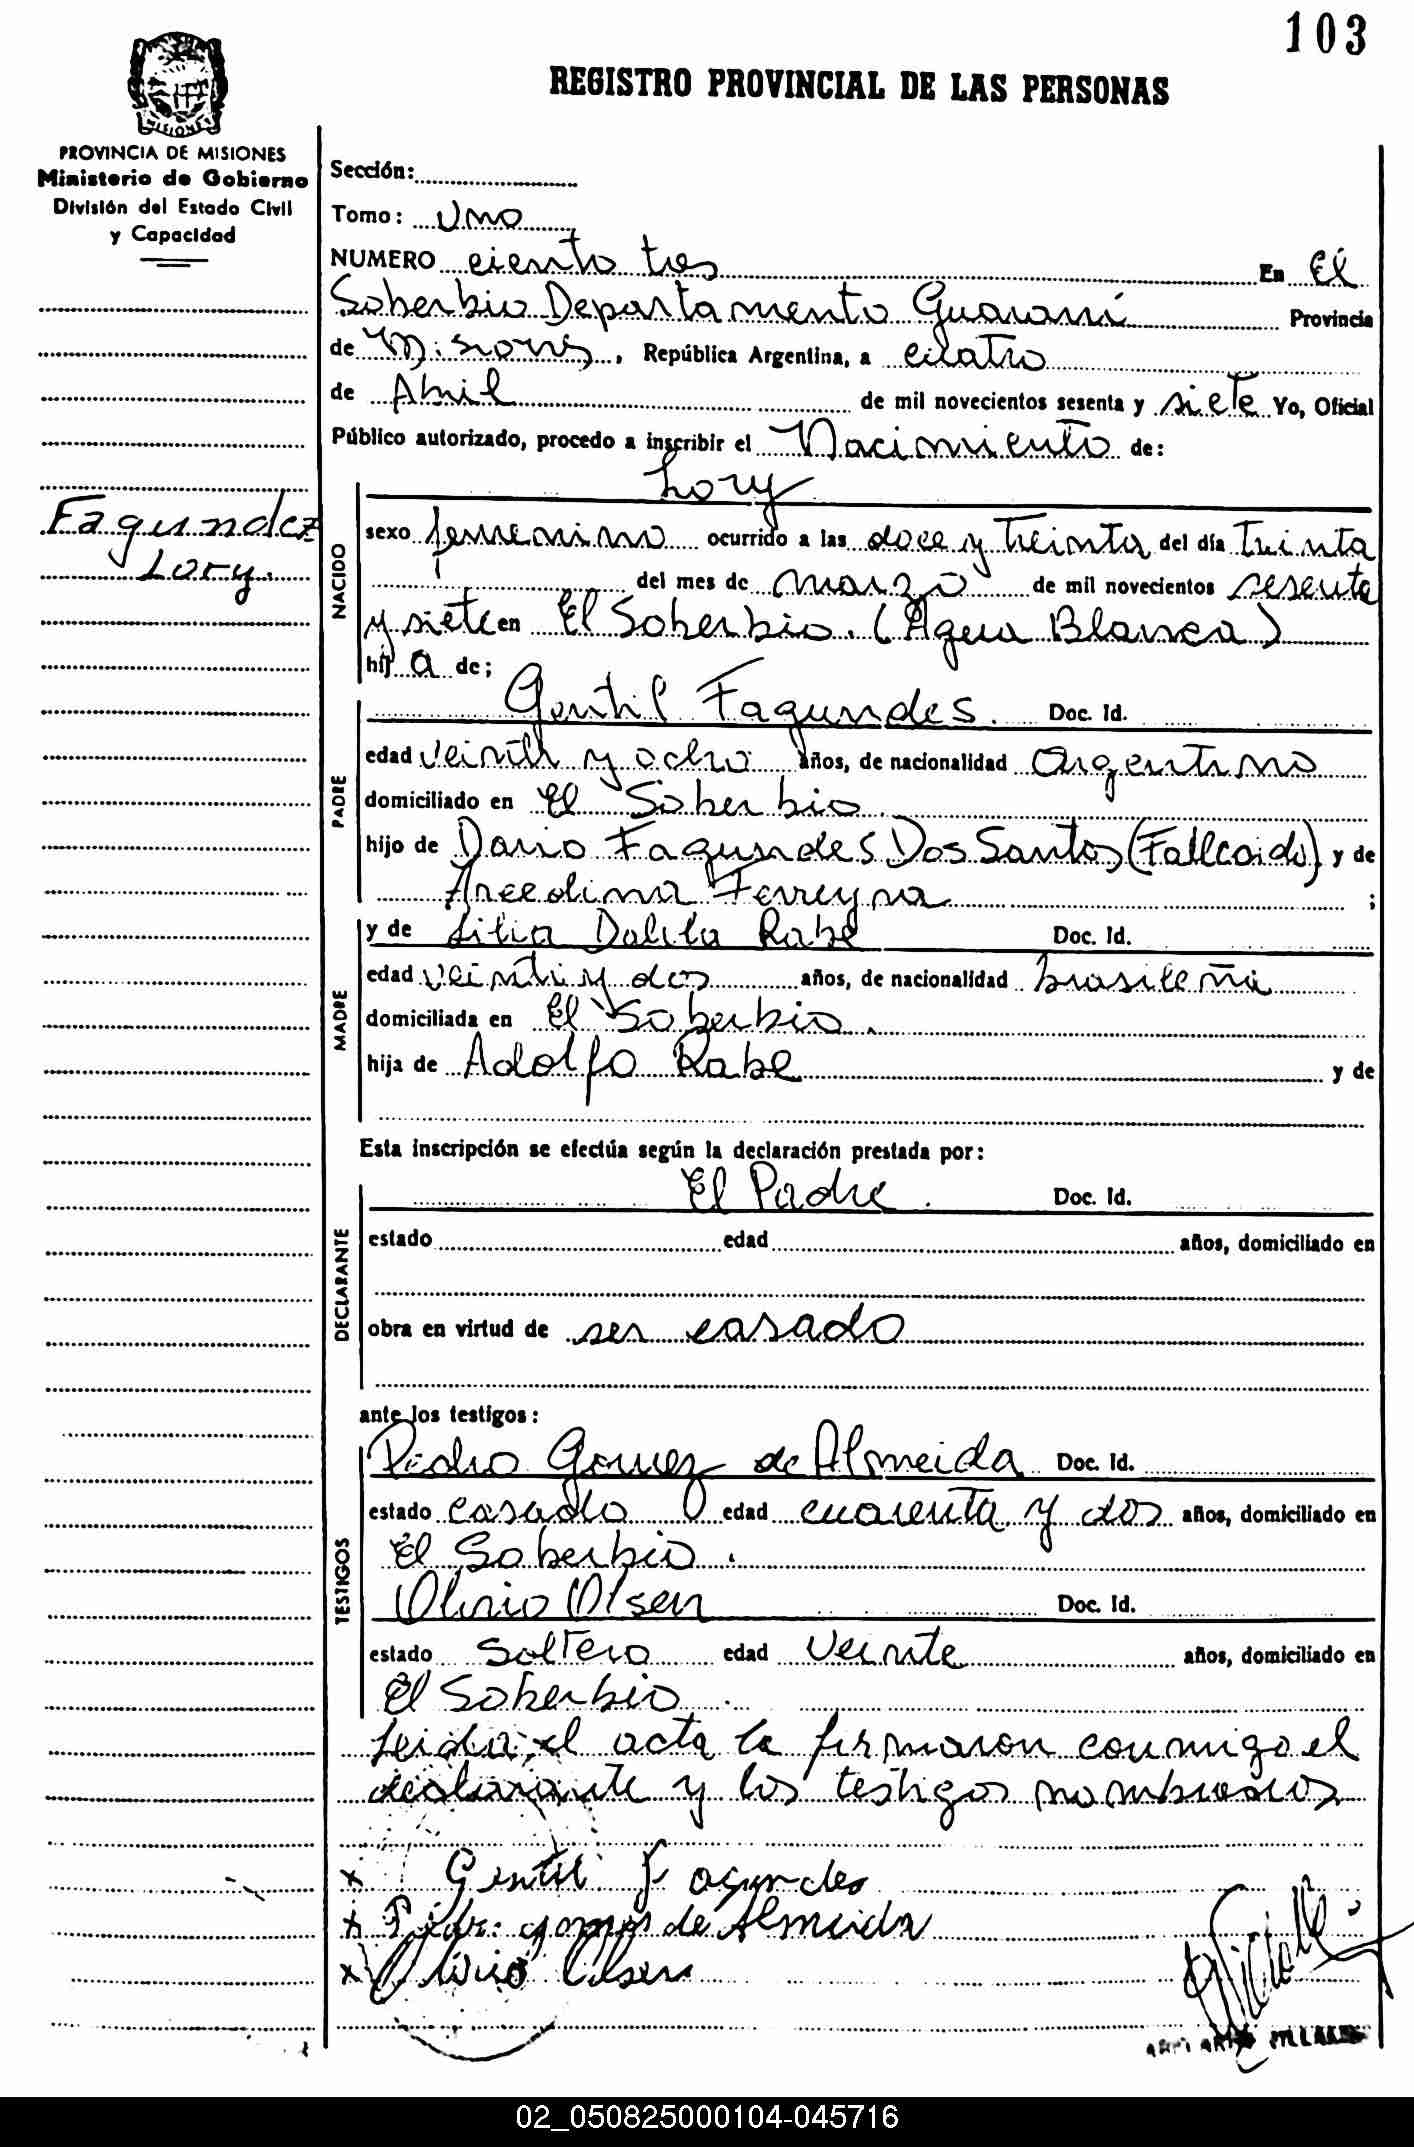 103
REGISTRO PROVINCIAL DE LAS PERSONAS
MISIONES
PROVINCIA DE MISIONES
Ministerio de Gobierno
División del Estado Civil
y Capacidad
Sección:
Tomo: Uno
NUMERO ciento tres En El
Soberbio Departamento Guaraní Provincia
de Misiones, República Argentina, a cuatro
de Abril de mil novecientos sesenta y siete Yo, Oficial
Público autorizado, procedo a inscribir el Nacimiento de:
Fagundez
Lory.
NACIDO
Lory
sexo femenino ocurrido a las doce y treinta del día treinta
del mes de marzo de mil novecientos sesenta
y siete en El Soberbio. (Agua Blanca)
hij a de;
PADRE
Gentil Fagundes. Doc. Id.
edad veinti y ocho años, de nacionalidad argentino
domiciliado en El Soberbio.
hijo de Dario Fagundes Dos Santos (Fallcoido) y de
Arcedina Ferreyra ;
MADRE
y de Lilia Dalila Rabe Doc. Id.
edad veinti y dos años, de nacionalidad brasileña
domiciliada en El Soberbio.
hija de Adolfo Rabe y de
Esta inscripción se efectúa según la declaración prestada por:
DECLARANTE
El Padre. Doc. Id.
estado edad años, domiciliado en
obra en virtud de ser casado
ante los testigos:
TESTIGOS
Pedro Gomez de Almeida Doc. Id.
estado casado edad cuarenta y dos años, domiciliado en
El Soberbio.
Olivio Olsen Doc. Id.
estado Soltero edad veinte años, domiciliado en
El Soberbio.
Leida, el acta la firmaron conmigo el
declarante y los testigos nombrados
x Gentil Fagundes
x Pedro gomes de Almeida
x Olivio Olsen
02_050825000104-045716